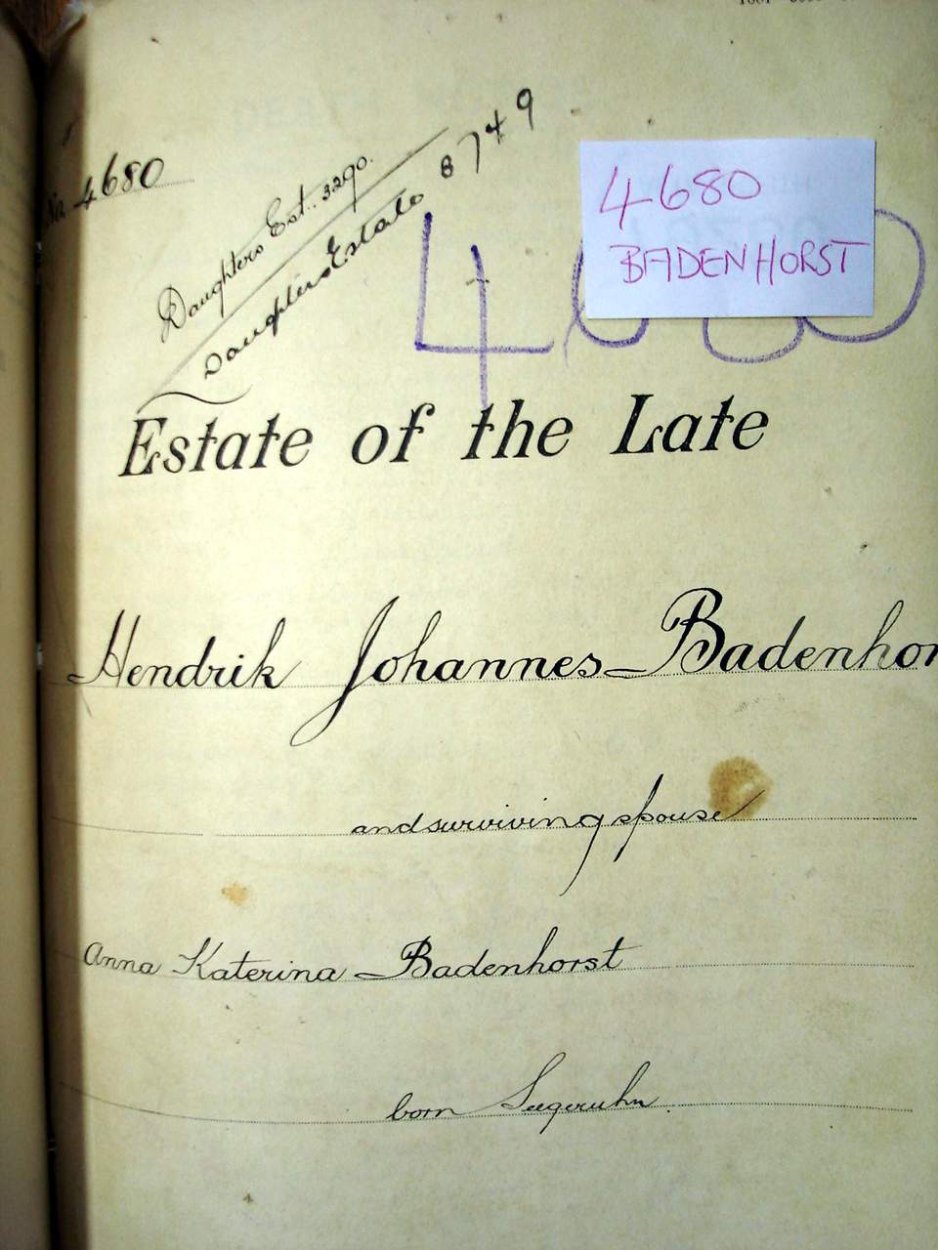 No 4680
Daughters Est. 3290.
Daughters Estate 8749
4680
BADENHORST
4680
Estate of the Late
Hendrik Johannes Badenhor
and surviving spouse
Anna Katerina Badenhorst
born